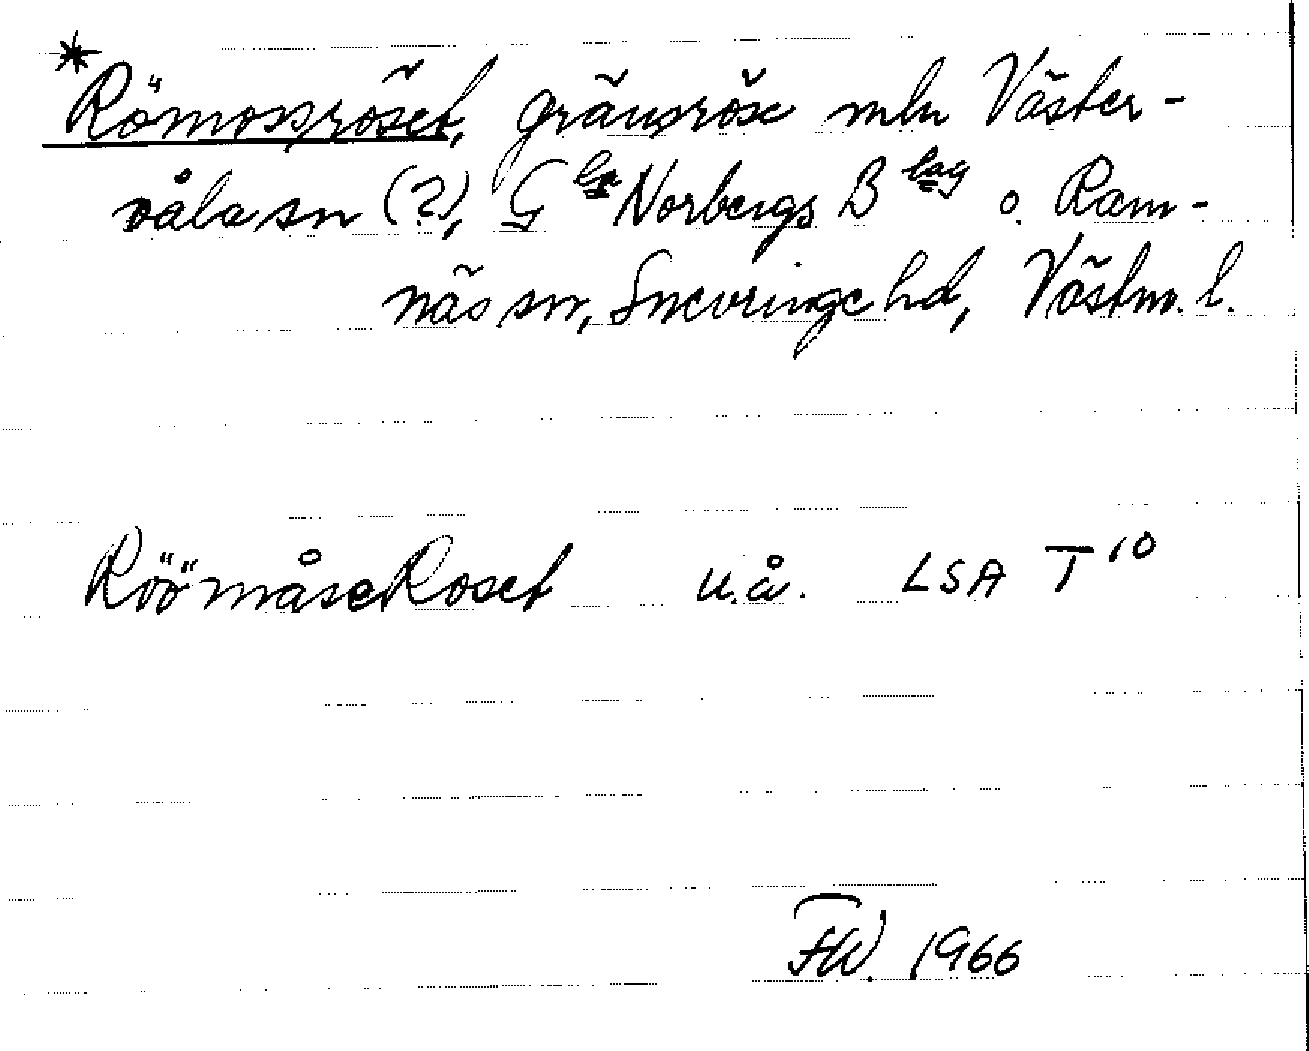 *Römossröset, gränsröse mln Väster-
våla sn (?), Gla Norbergs Blag o. Ram-
näs sn, Snevringe hd, Västm. l.
Röömåse Roset u.å. LSA T 10
FW. 1966